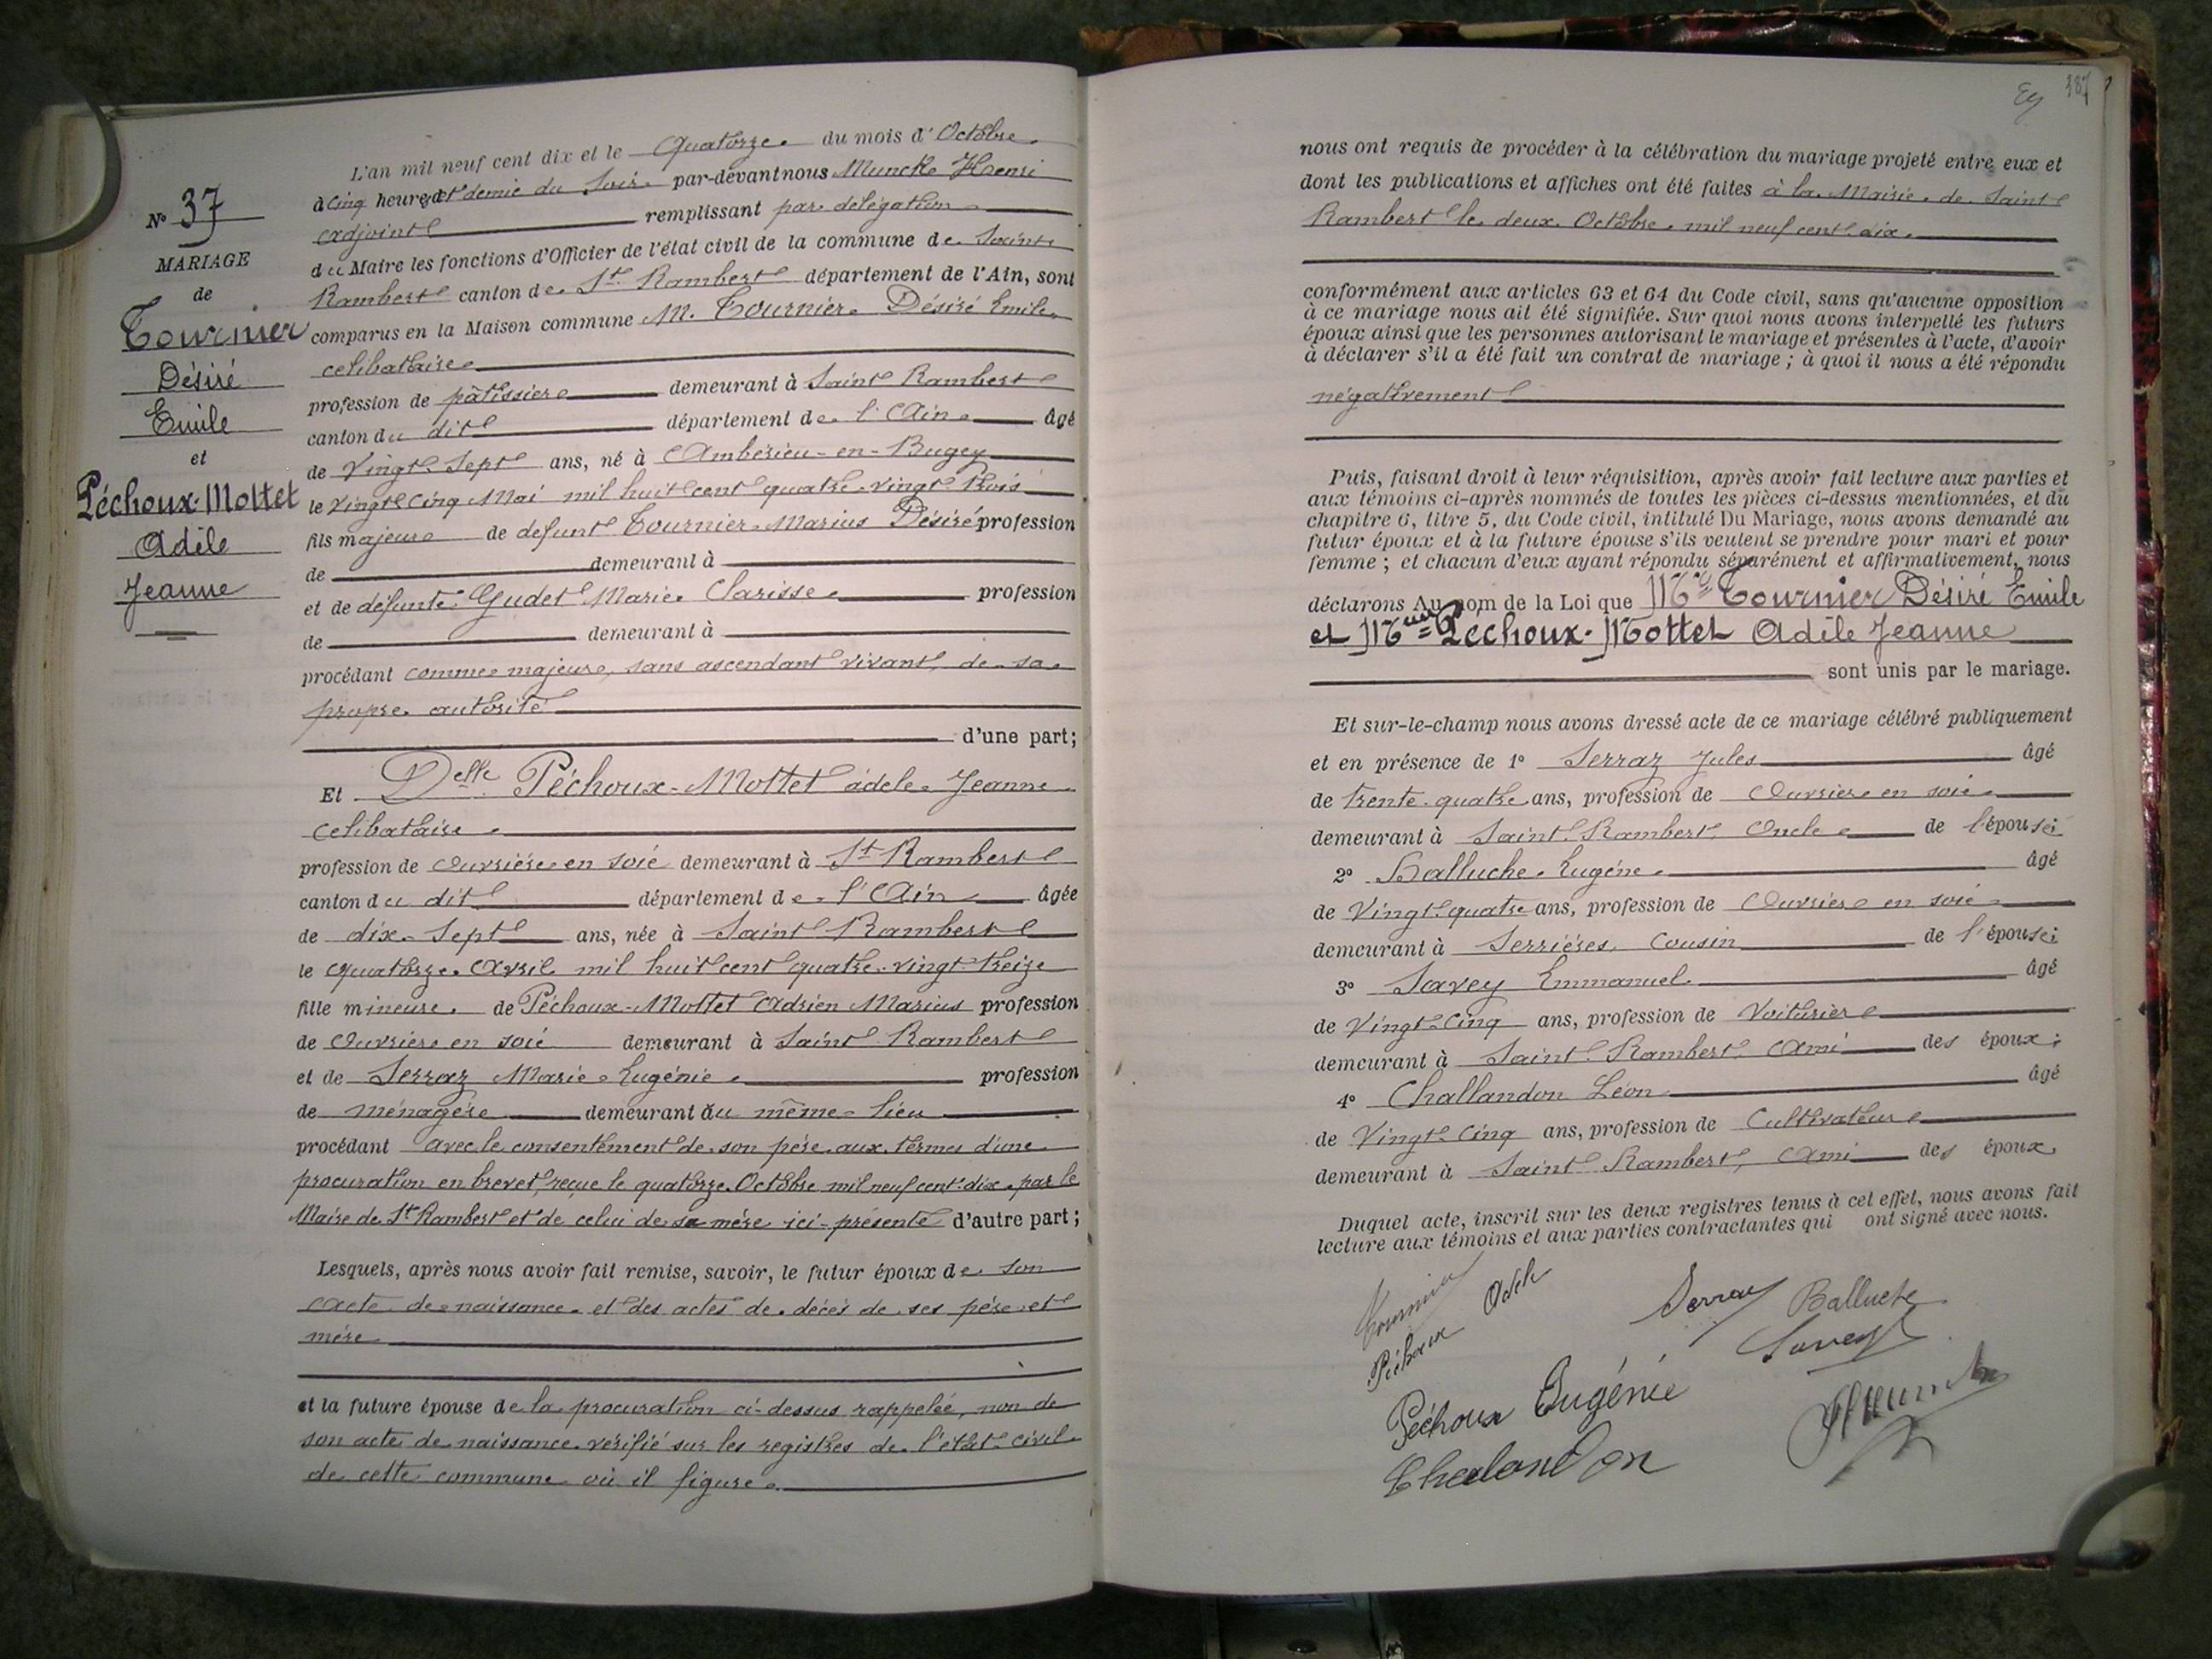 N° 37
MARIAGE
de
Tournier
Désiré
Emile
et
Péchoux-Mottet
Adèle
Jeanne
L'an mil neuf cent dix et le Quatorze du mois d'Octobre
à cinq heures et demie du Soir par-devant nous Munck Henri
adjoint remplissant par délégation
du Maire les fonctions d'Officier de l'état civil de la commune de Saint
Rambert canton de St. Rambert département de l'Ain, sont
comparus en la Maison commune M. Tournier Désiré Emile
celibataire
profession de pâtissier demeurant à Saint Rambert
canton du dit département de l'Ain âgé
de Vingt Sept ans, né à Ambérieu-en-Bugey
le Vingt cinq Mai mil huit cent quatre-vingt trois
fils majeur de defunt Tournier Marius Désiré profession
de demeurant à
et de défunte Gudet Marie Clarisse profession
de demeurant à
procédant comme majeur, sans ascendant vivant, de sa
propre autorité
d'une part;
Et Delle Péchoux-Mottet adele Jeanne
celibataire
profession de Ouvrière en soie demeurant à St Rambert
canton du dit département de l'Ain âgée
de dix-Sept ans, née à Saint Rambert
le Quatorze Avril mil huit cent quatre-vingt-treize
fille mineure de Péchoux-Mottet Adrien Marius profession
de Ouvrier en soie demeurant à Saint Rambert
et de Serraz Marie Eugénie profession
de ménagère demeurant au même lieu
procédant avec le consentement de son père aux termes d'une
procuration en brevet, reçue le quatorze Octobre mil neuf cent dix par le
Maire de St Rambert et de celui de sa mère ici-présente d'autre part;
Lesquels, après nous avoir fait remise, savoir, le futur époux de son
acte de naissance et des actes de décès de ses père et
mère
et la future épouse de la procuration ci-dessus rappelée, non de
son acte de naissance vérifié sur les registres de l'état civil
de cette commune où il figure.
187
nous ont requis de procéder à la célébration du mariage projeté entre eux et
dont les publications et affiches ont été faites à la Mairie de Saint
Rambert le deux Octobre mil neuf cent dix.
conformément aux articles 63 et 64 du Code civil, sans qu'aucune opposition
à ce mariage nous ait été signifiée. Sur quoi nous avons interpellé les futurs
époux ainsi que les personnes autorisant le mariage et présentes à l'acte, d'avoir
à déclarer s'il a été fait un contrat de mariage ; à quoi il nous a été répondu
négativement
Puis, faisant droit à leur réquisition, après avoir fait lecture aux parties et
aux témoins ci-après nommés de toutes les pièces ci-dessus mentionnées, et du
chapitre 6, titre 5, du Code civil, intitulé Du Mariage, nous avons demandé au
futur époux et à la future épouse s'ils veulent se prendre pour mari et pour
femme ; et chacun d'eux ayant répondu séparément et affirmativement, nous
déclarons Au nom de la Loi que Mr Tournier Désiré Emile
et Melle Péchoux-Mottet Adèle Jeanne
sont unis par le mariage.
Et sur-le-champ nous avons dressé acte de ce mariage célébré publiquement
et en présence de 1° Serraz Jules âgé
de trente quatre ans, profession de Ouvrier en soie
demeurant à Saint Rambert, Oncle de l'épouse;
2° Balluche Eugène âgé
de Vingt-quatre ans, profession de Ouvrier en soie
demeurant à Serrières, Cousin de l'épouse;
3° Savey Emmanuel âgé
de Vingt-cinq ans, profession de Voiturier
demeurant à Saint Rambert, Ami des époux;
4° Challandon Léon âgé
de Vingt-Cinq ans, profession de Cultivateur
demeurant à Saint Rambert, Ami des époux
Duquel acte, inscrit sur les deux registres tenus à cet effet, nous avons fait
lecture aux témoins et aux parties contractantes qui ont signé avec nous.
Tournier
Péchoux Adèle
Serraz
Balluche
Savey
Péchoux Eugénie
Chalandon